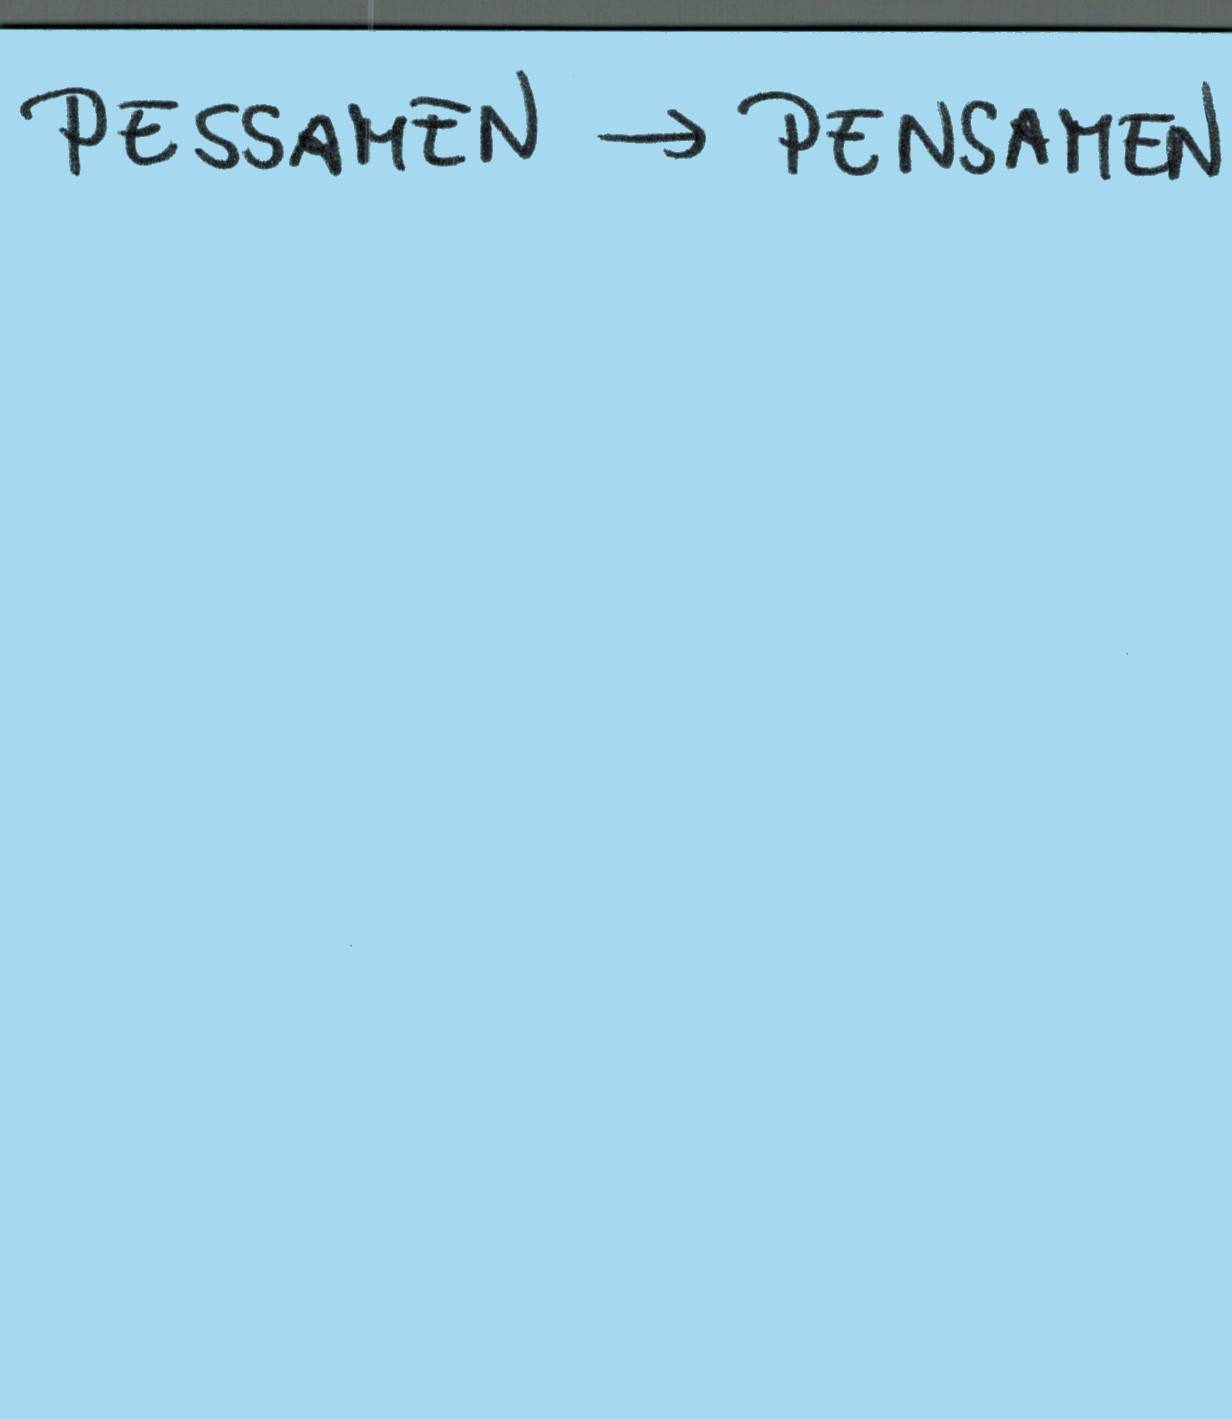 PESSAMEN → PENSAMEN